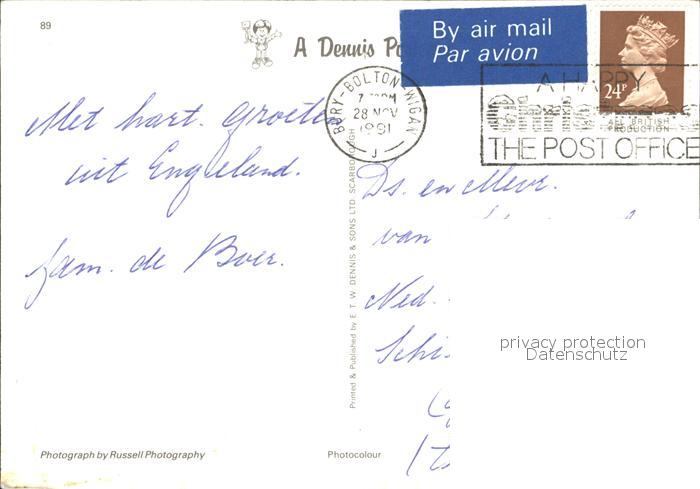 89
A Dennis
By air mail
Par avion
24P
BURY-BOLTON-WIGAN
28 NOV
1991
J
A HAPPY
ALL BRITISH
PRODUCTION
THE POST OFFICE
Met hart. Groeten
uit Engeland.
fam. de Boer.
Ds. en Mevr.
van
Ned.
Schi
Printed & Published by E. T. W. DENNIS & SONS LTD. SCARBOROUGH
privacy protection
Datenschutz
Photograph by Russell Photography
Photocolour